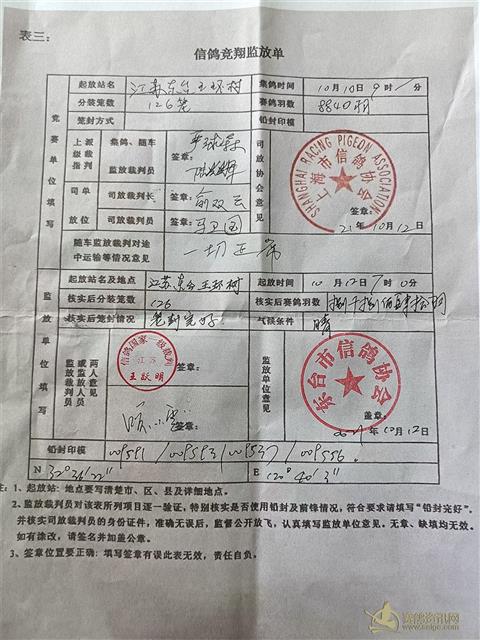 表三:
信鸽竞翔监放单
竞赛单位填写
起放站名 江苏东台王环村 集鸽时间 10月10日9时/分
分装笼数 126笼 赛鸽羽数 8840羽
笼封方式 铅封印模
上派级裁指判
集鸽、随车
监放裁判员 签章:
司放协会意见
SHANGHAI RACING PIGEON ASSOCIATION
上海市信鸽协会
签章:
21年10月12日
司单放位
司放裁判长 签章: 俞双云
司放裁判员 签章: 马卫国
随车监放裁判对途
中运输等情况意见 一切正常
监放单位填写
起放站名及地点 江苏东台王环村 起放时间 10月12日7时0分
核实后分装笼数 126 核实后赛鸽羽数 捌千捌佰肆拾羽
核实后笼封情况 笼封完好 气候条件 晴
两人意见
监放裁判员
或监放人员
信鸽国家一级裁判
江苏
王跃明
签章:
签章:
监放单位意见
东台市信鸽协会
盖章:
2021年10月12日
铅封印模 009591/009593/009537/009556.
N 32°36′22″ E 120°40′3″
注: 1、起放站: 地点要写清楚市、区、县及详细地点。
2、监放裁判员对该表所列项目逐一验证,特别核实是否使用铅封及前锋情况,符合要求请填写“铅封完好”。
并核实司放裁判员的身份证件,准确无误后,监督公开放飞,认真填写监放单位意见。无章、缺填均无效。
如有涂改,请签名并加盖公章。
3、签章位置要正确: 填写签章有误此表无效,责任自负。
赛鸽资讯网
www.saige.com